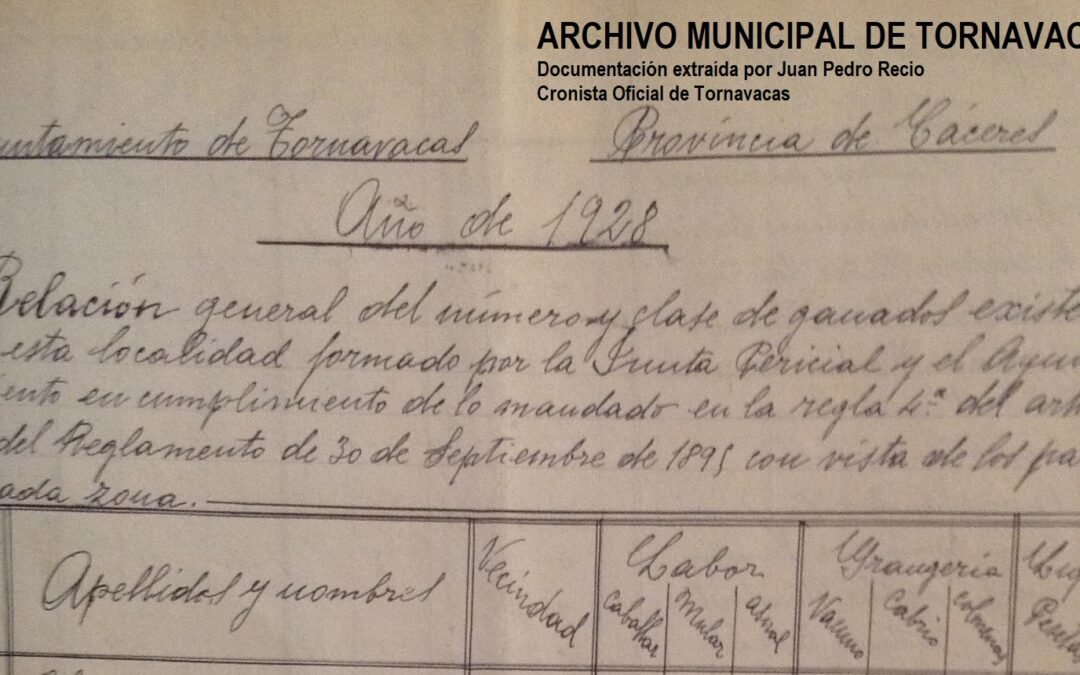 ARCHIVO MUNICIPAL DE TORNAVAC
Documentación extraída por Juan Pedro Recio
Cronista Oficial de Tornavacas
untamiento de Tornavacas Provincia de Cáceres
Año de 1928
Relación general del número y clase de ganados existe
esta localidad formado por la Junta Pericial y el Ayun
ento en cumplimiento de lo mandado en la regla 4ª del art
del Reglamento de 30 de Septiembre de 1895 con vista de los pa
ada zona.
Apellidos y nombres Vecindad Labor Grangeria
Caballar Mular asnal Vacuno Cabrio colmenas